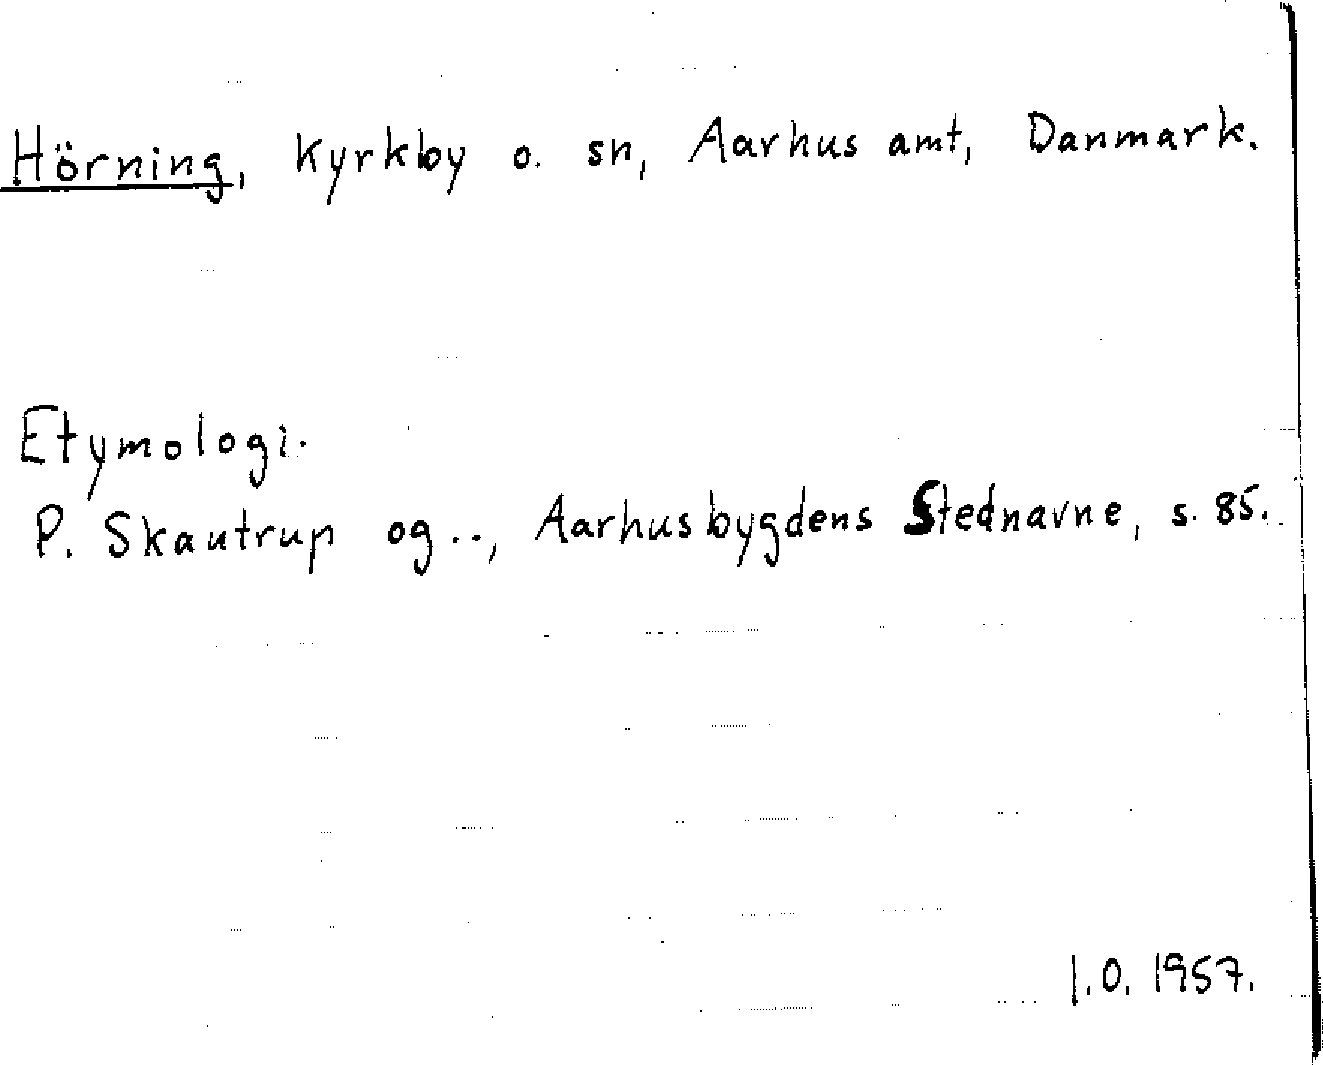 Hörning, Kyrkby o. sn, Aarhus amt, Danmark.
Etymologi.
P. Skautrup og.., Aarhusbygdens Stednavne, s. 85.
I.O. 1957.